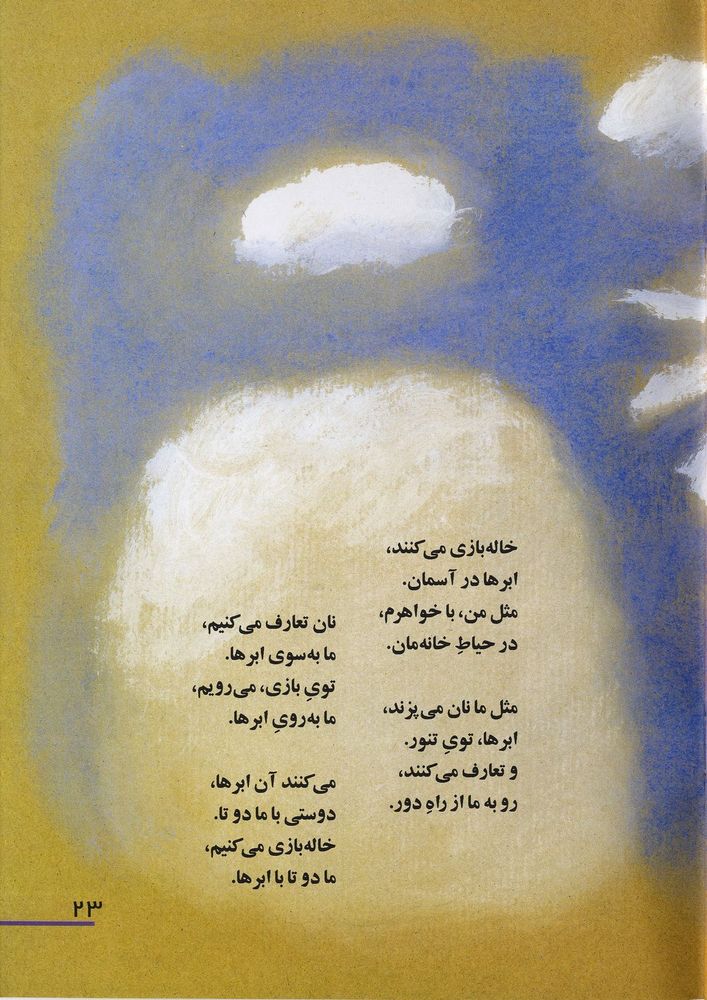 خاله‌بازی می‌کنند،
ابرها در آسمان.
مثل من، با خواهرم،
در حیاطِ خانه‌مان.
مثل ما نان می‌پزند،
ابرها، تویِ تنور.
و تعارف می‌کنند،
رو به ما از راهِ دور.
نان تعارف می‌کنیم،
ما به‌سوی ابرها.
تویِ بازی، می‌رویم،
ما به‌رویِ ابرها.
می‌کنند آن ابرها،
دوستی با ما دو تا.
خاله‌بازی می‌کنیم،
ما دو تا با ابرها.
۲۳